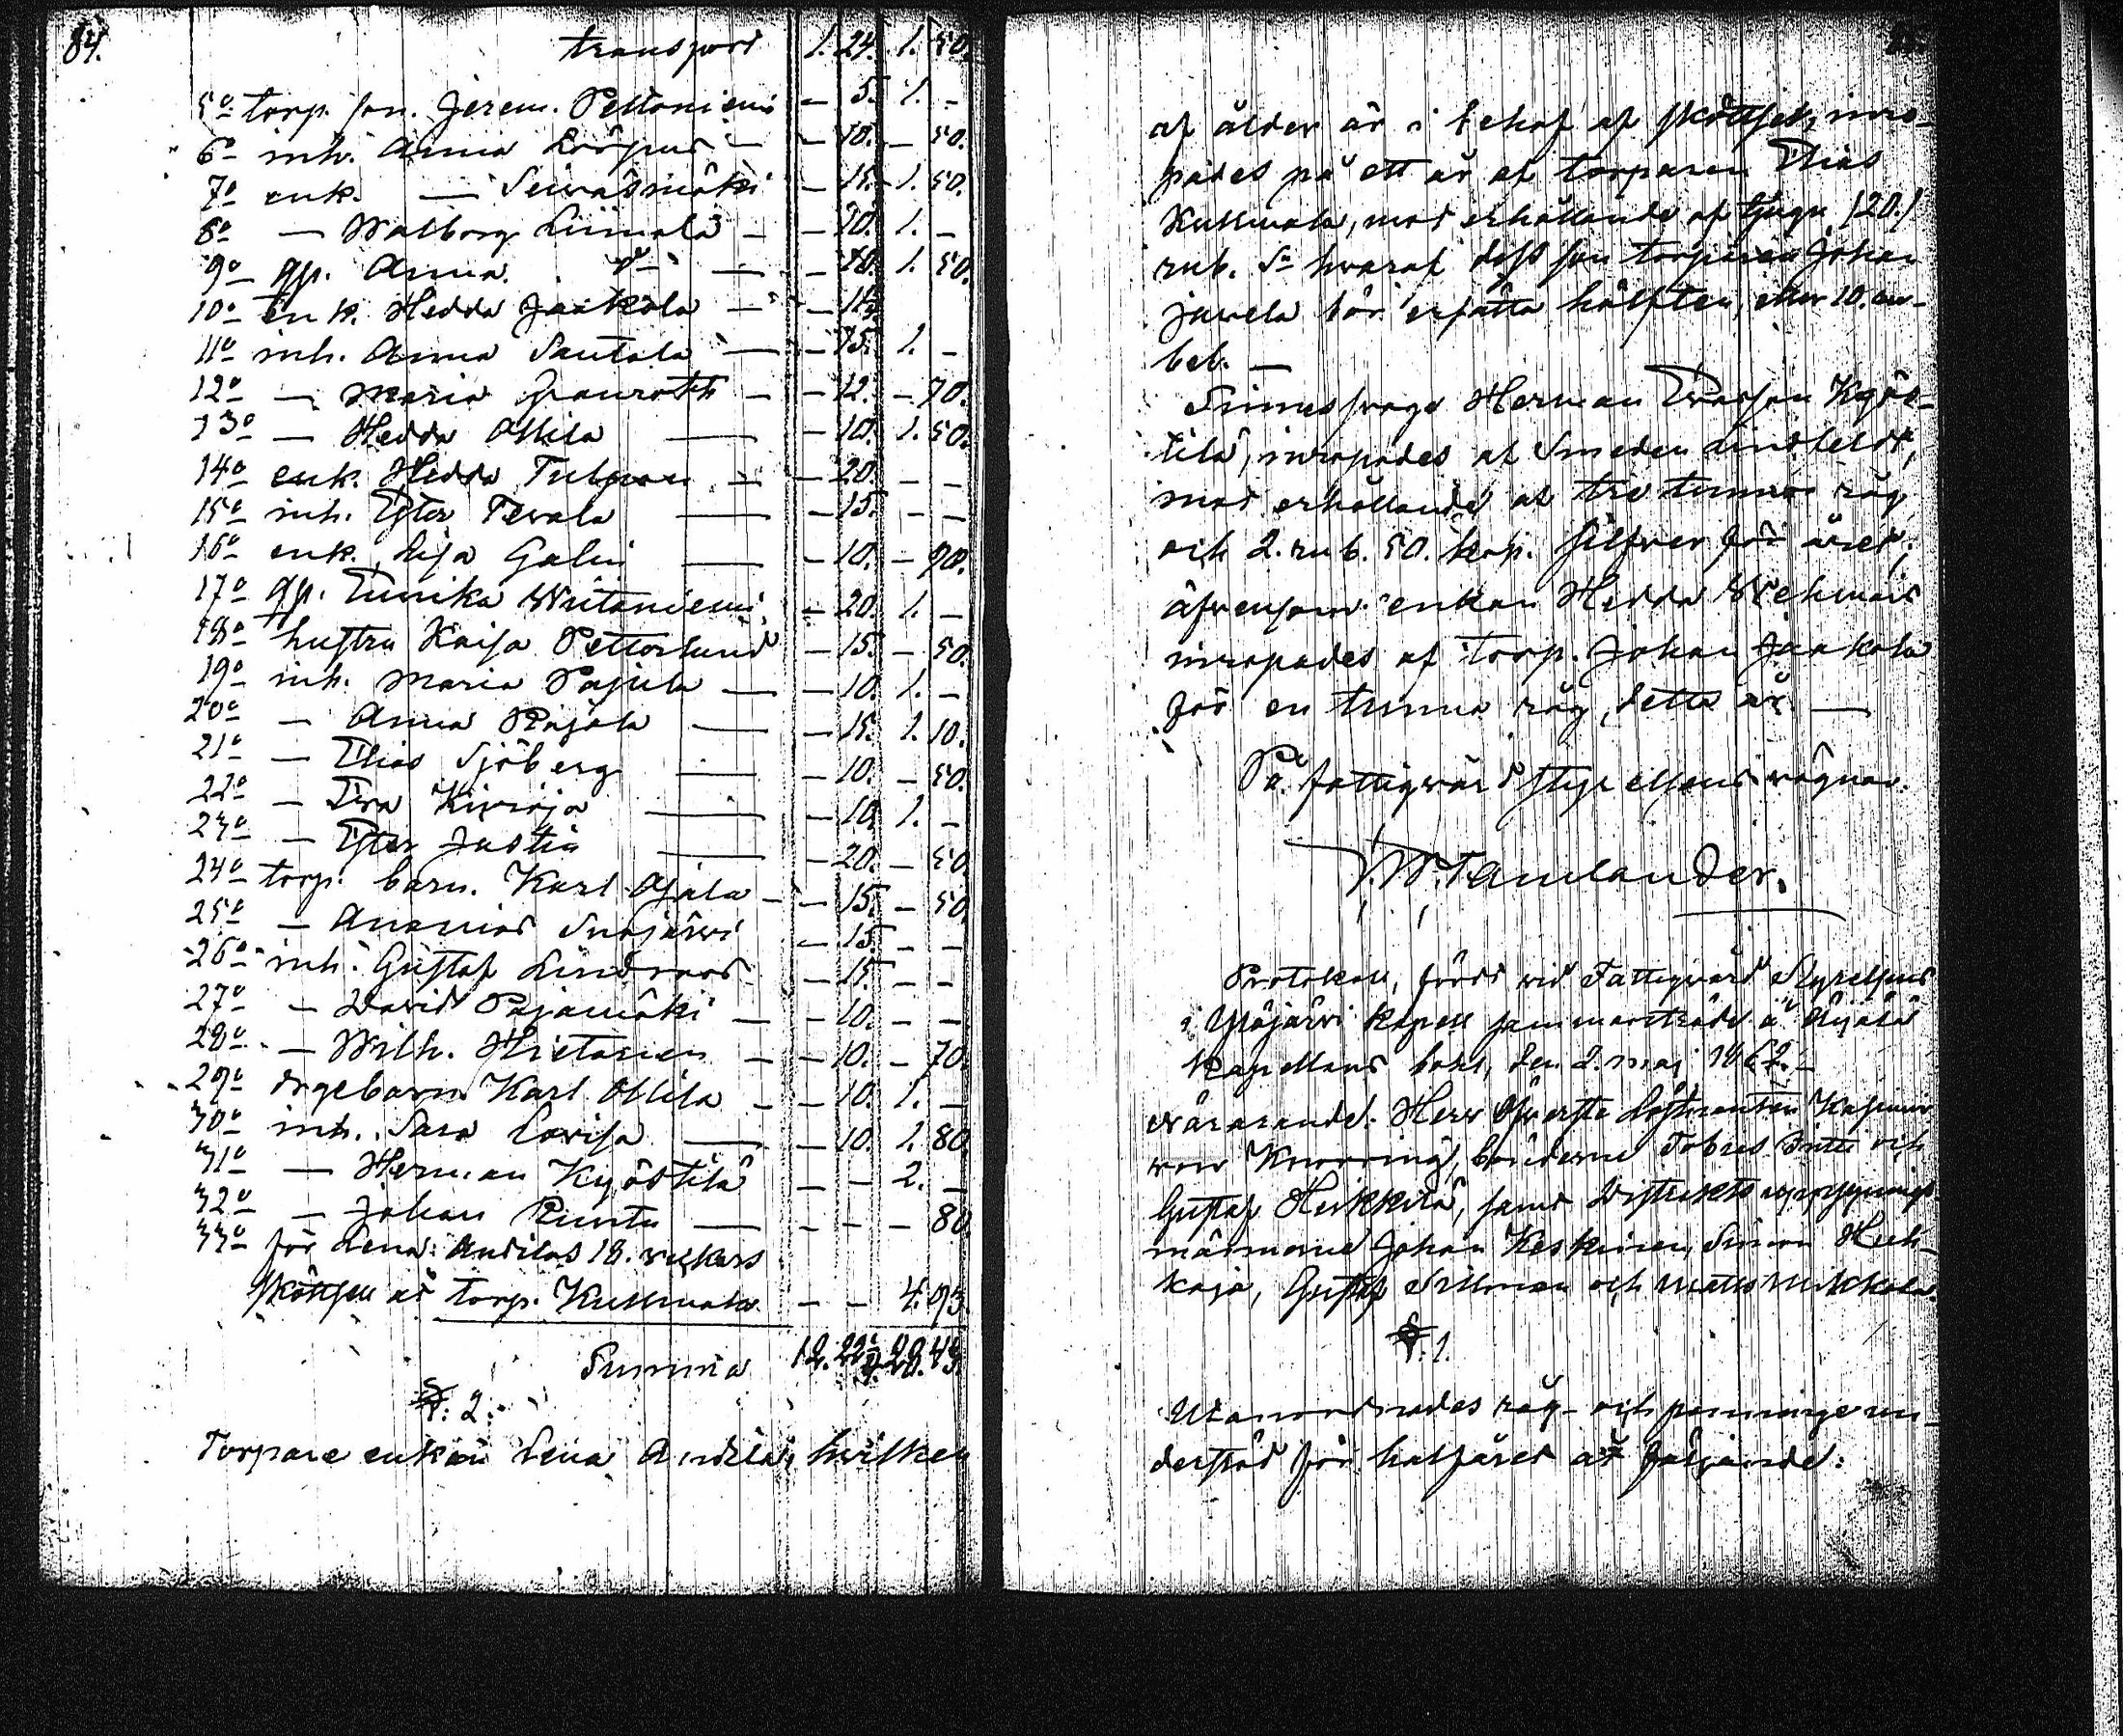 84.
transport 1. 24. 1. 50.
5o torp. son. Jerem. Peltoniemi — 5. 1. —
6o inh. Anna Löfgus — — 10. — 50.
7o enk. — Seiwäsmäki — 15. 1. 50.
8o — Walborg Liimala — — 20. 1. —
9o gp. Anna do — — 20. 1. 50.
10o enk. Hedda Jaakola — — 14.
11o inh. Anna Santala — — 15. 1. —
12o — Maria Granroth — — 12. — 70.
13o — Hedda Ollila — — 10. 1. 50.
14o enk. Hedda Tulman — — 20. — —
15o inh. Ester Tewala — — 15. — —
16o enk. Lisa Galin — — 10. — 90.
17o gp. Eunika Wiitaniemi — 20. 1. —
18o hustru Kaisa Petterlund — 15. — 50.
19o inh. Maria Pajula — — 10. 1. —
20o — Anna Rajala — — 15. 1. 10.
21o — Elias Sjöberg — — 10. — 50.
22o — Eva Kiwioja — — 10. 1. —
23o — Ester Justin — — 20. — 50
24o torp. barn. Karl Ojala — — 15. — 50
25o — Ananias Snojärwi — 15. — —
26o inh. Gustaf Lindroos — 15. — —
27o — David Pajamäki — — 10. — —
28o — Wilh. Hietanen — — 10. — 70.
29o drgebarn Karl Ollila — — 10. 1. —
30o inh. Sara Lovisa — — 10. 1. 80.
31o — Herman Kyöstilä — — 2. —
32o — Johan Runtu — — — — 80.
33o för Lena Andilas 18. veckors
skötsel åt torp. Kullmala — — 4. 93.
Summa 12. 22½ 28. 43.
§. 2.
Torpare enkan Lena Andila, hvilken
af ålder är i behof af skötsel, inro-
pades på ett år af torparen Elias
Kullmala, mot erhållande af tjugu /20./
rub. Sr hvaraf dess son torparen Johan
Juvela bör ersätta hälften, eller 10. ru-
bel. —
Sinnessvage Herman Evasson Kyös-
tilä, inropades af Smeden Lindfeldt,
mot erhållande af tre tunnor råg
och 2. rub. 50. kop. silfver för året,
äfvensom enkan Hedda Wehmais
inropades af torp. Johan Jaakola
för en tunna råg, detta år. —
På fattigvård styrelsens vägnar.
W. Tamlander.
Protokoll, fördt vid Fattigvård Styrelsens
i Ylöjärvi kapell sammanträde å Äijälä
Kapellans bohl, den 2. maj 1862. —
närvarande: Herr Öfverste Löjtnanten Kasimir
von Knorring, bönderne Tobias Antti och
Gustaf Heikkilä, samt Distrikts uppsynings
männerne Johan Keskinen, Simon Huh-
kaja, Gustaf Sillman och Matts Mikkola.
§. 1.
Utanordnades råg- och penninge un-
derstöd för halfåret åt följande: